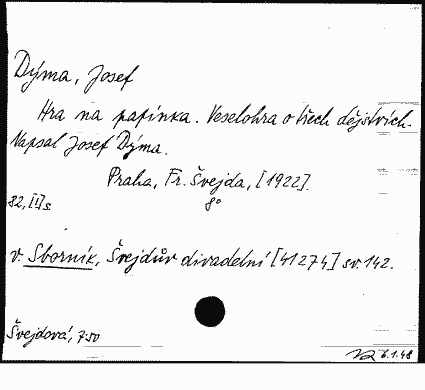 Dýma, Josef
Hra na papínka. Veselohra o třech dějstvích.
Napsal Josef Dýma.
Praha, Fr. Švejda, [1922].
82, [I] s. 8°
v. Sborník, Švejdův divadelní [41274] sv. 142.
Švejdová, 7:50
6.1.48